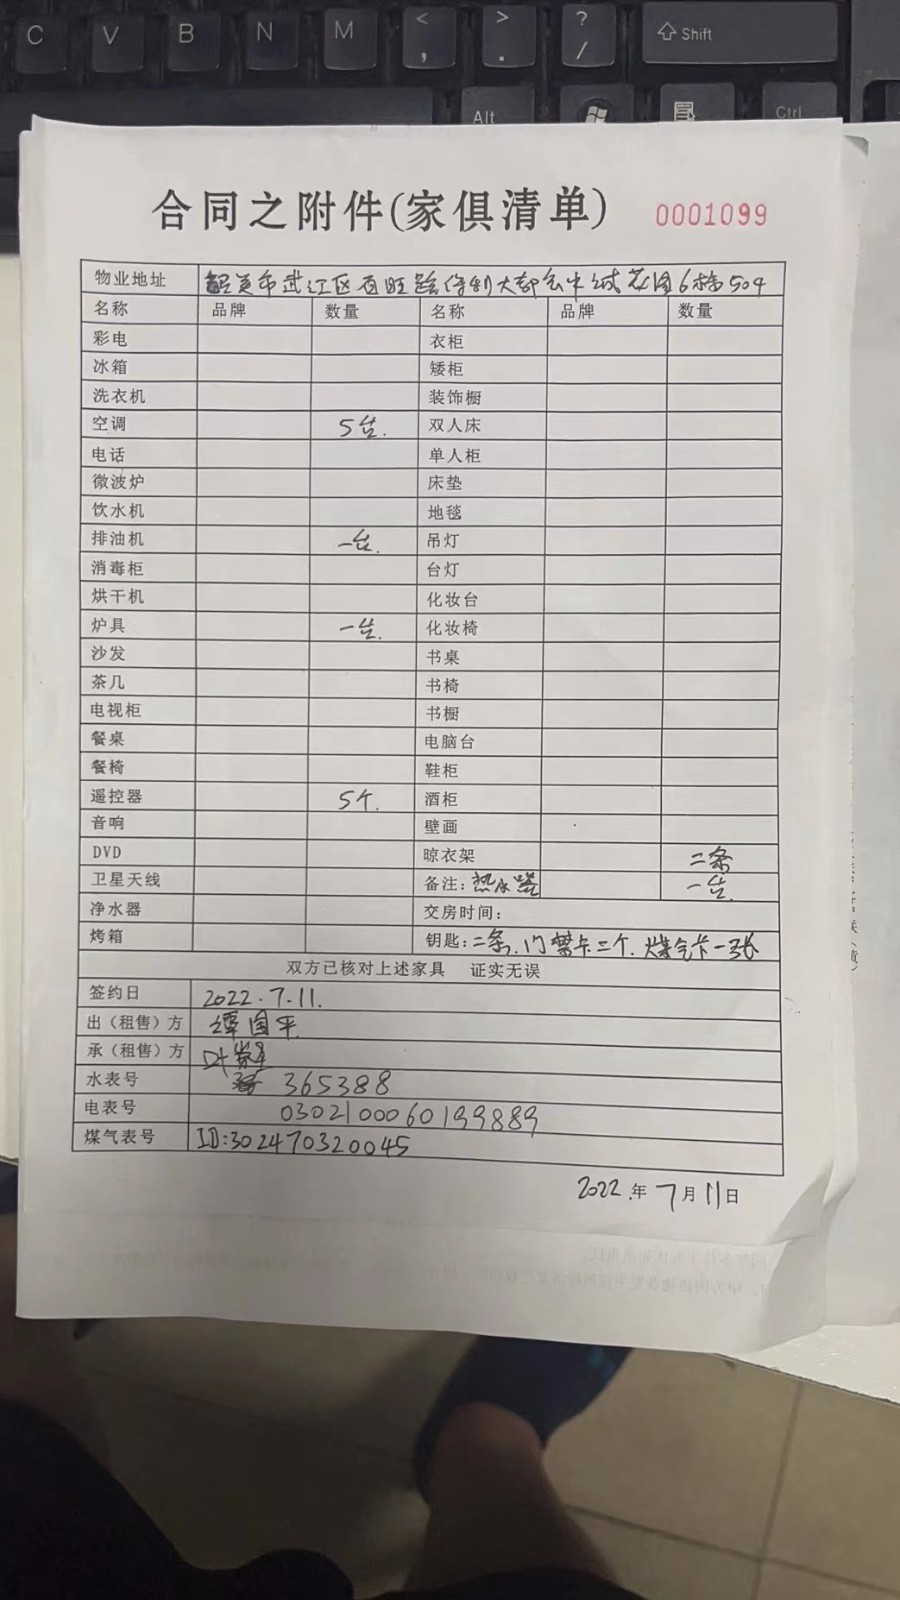 C V B N M < , > . ? / Shift
Alt Ctrl
合同之附件(家俱清单) 0001099
物业地址 韶关市武江区百旺路保利大都会中城花园6栋504
名称 品牌 数量 名称 品牌 数量
彩电 衣柜
冰箱 矮柜
洗衣机 装饰橱
空调 5台. 双人床
电话 单人柜
微波炉 床垫
饮水机 地毯
排油机 一台. 吊灯
消毒柜 台灯
烘干机 化妆台
炉具 一台. 化妆椅
沙发 书桌
茶几 书椅
电视柜 书橱
餐桌 电脑台
餐椅 鞋柜
遥控器 5个. 酒柜
音响 壁画
DVD 晾衣架 二条
卫星天线 备注: 热水器 一台.
净水器 交房时间:
烤箱 钥匙: 二条. 门禁卡二个. 煤气卡一张
双方已核对上述家具 证实无误
签约日 2022.7.11.
出（租售）方 谭国平
承（租售）方 叶
水表号 365388
电表号 0302100060199889
煤气表号 ID:302470320045
2022.年 7月11日